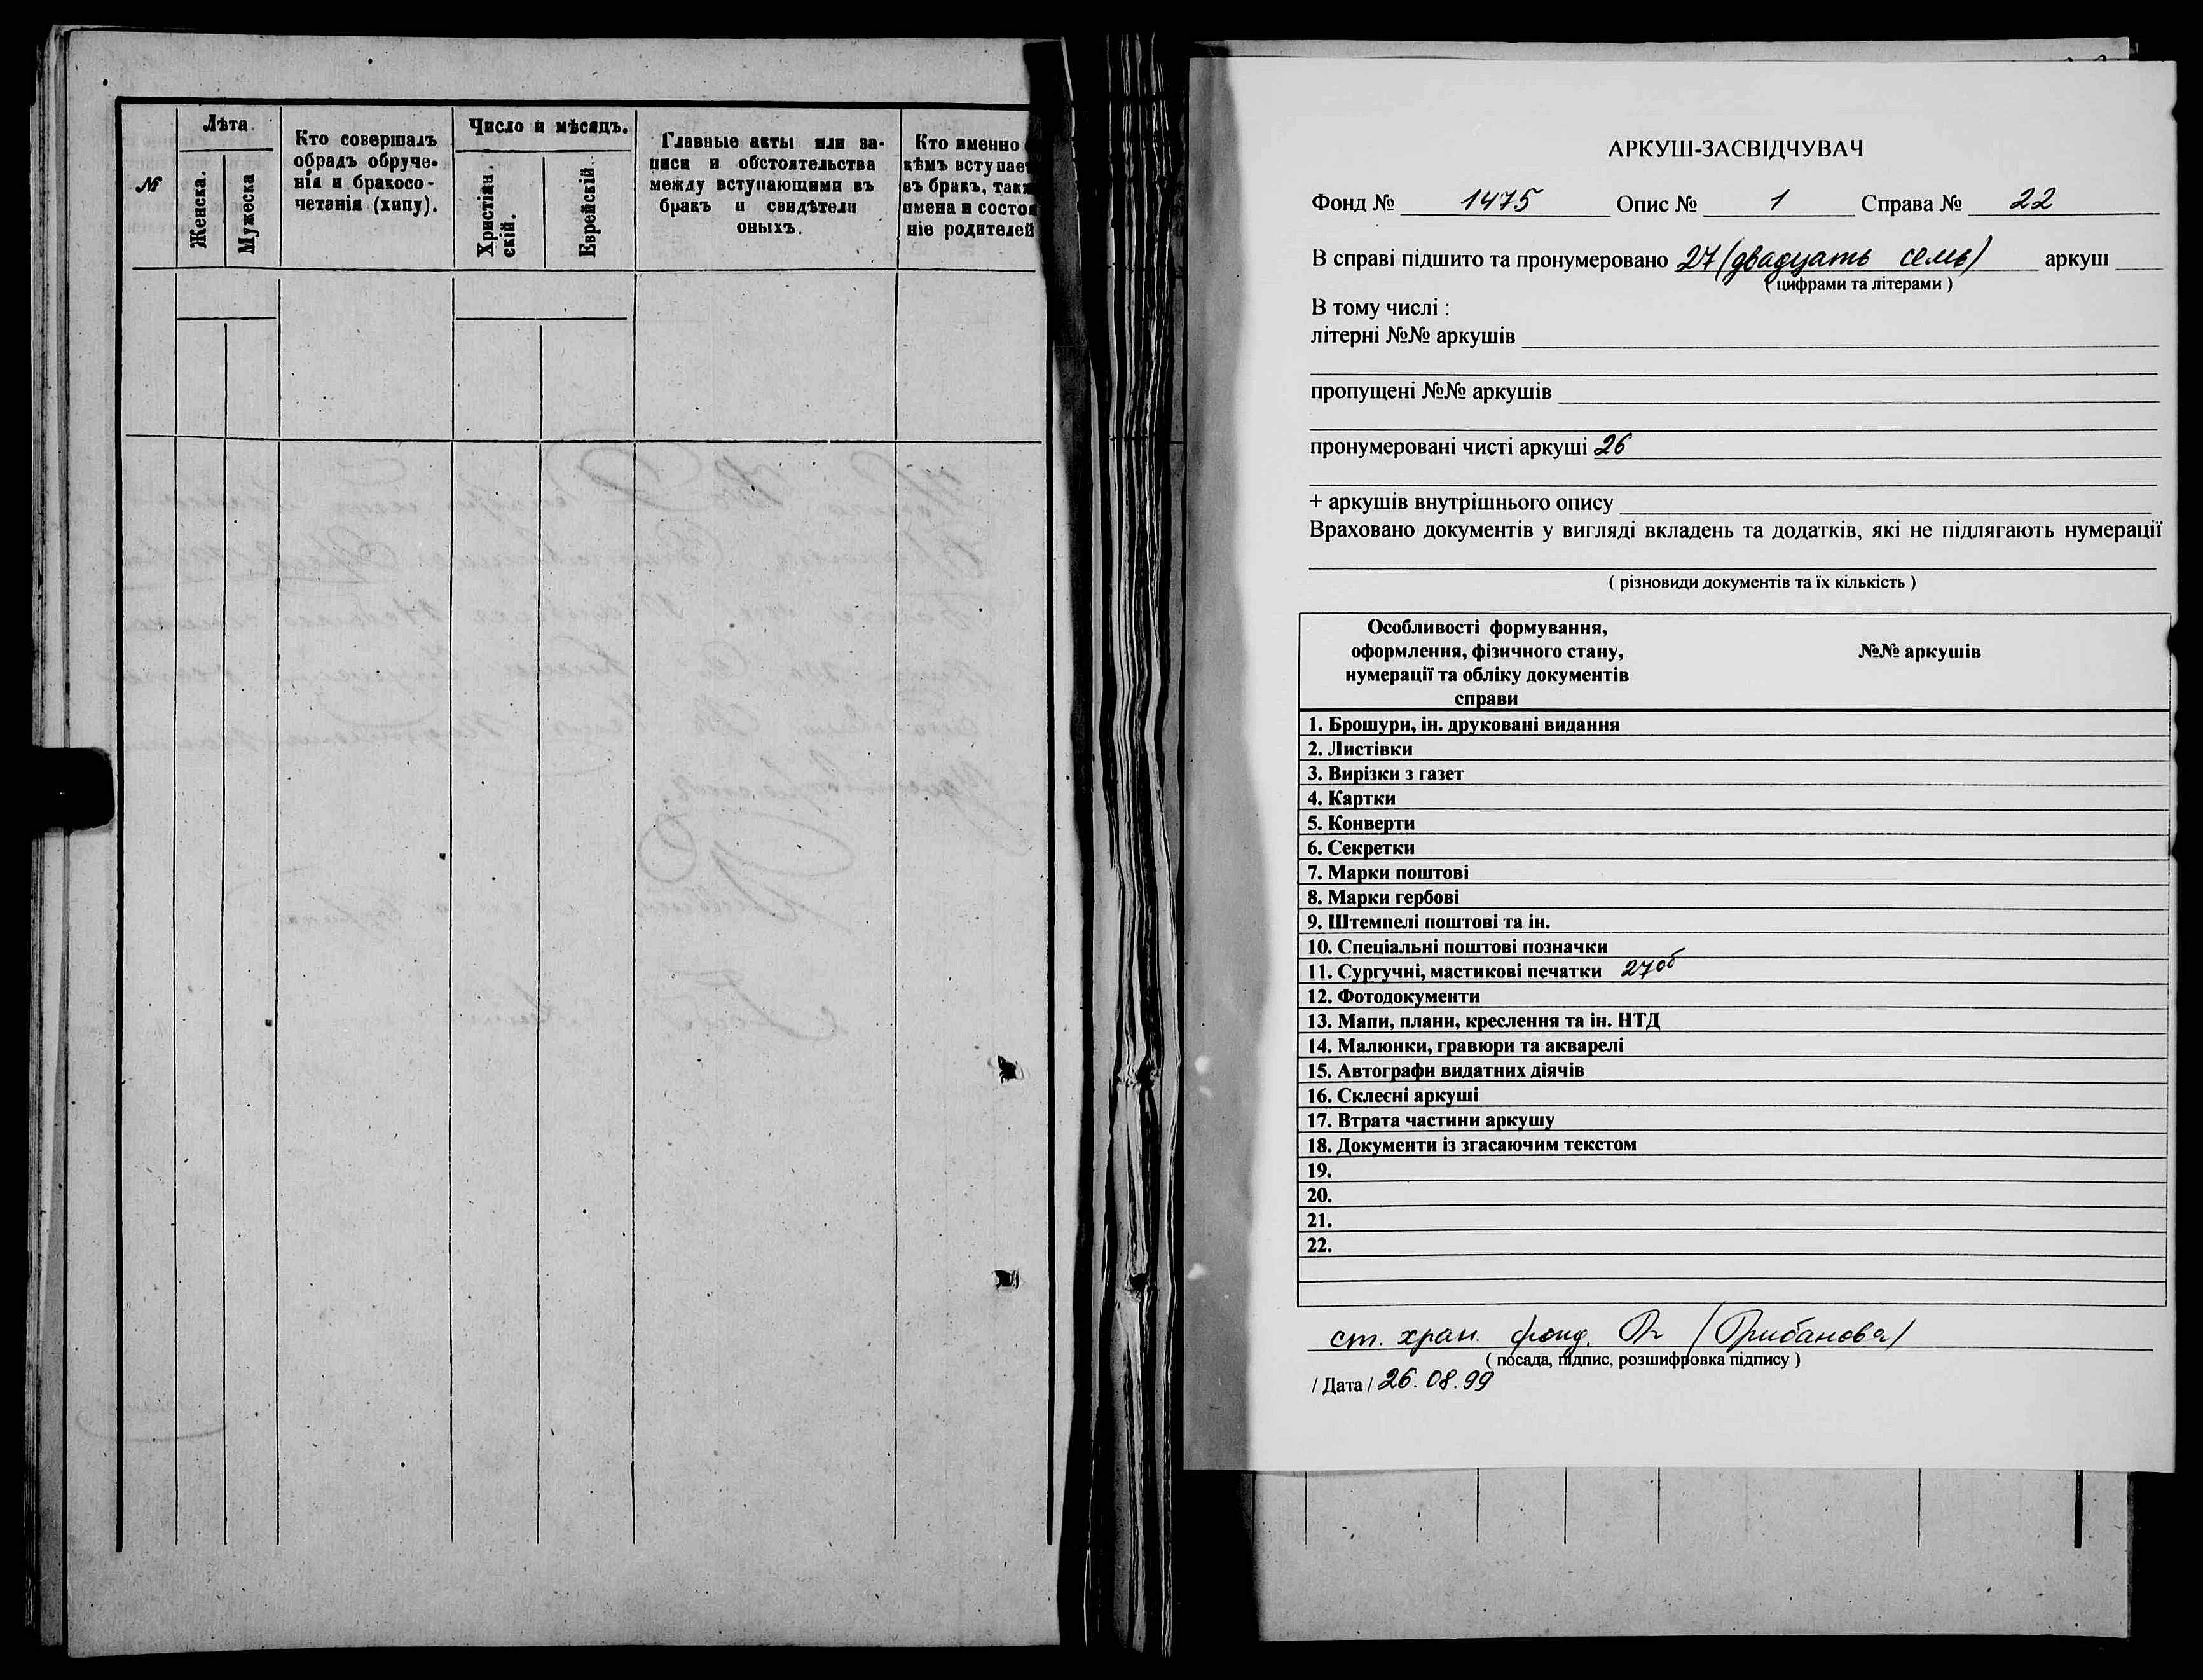 №
Лѣта
Женска.
Мужеска
Кто совершалъ
обрадъ обруче-
нія и бракосо-
четанія (хипу).
Число и мѣсяцъ.
Христіан.
скій.
Еврейскій.
Главные акты или за-
писи и обстоятельства
между вступающими въ
бракъ и свидѣтели
оныхъ.
Кто именно
кѣмъ вступае
въ бракъ, такж
имена и состоя
ніе родителей
АРКУШ-ЗАСВІДЧУВАЧ
Фонд № 1475 Опис № 1 Справа № 22
В справі підшито та пронумеровано 27 (двадцать семь) аркуш
( цифрами та літерами )
В тому числі :
літерні №№ аркушів
пропущені №№ аркушів
пронумеровані чисті аркуші 26
+ аркушів внутрішнього опису
Враховано документів у вигляді вкладень та додатків, які не підлягають нумерації
( різновиди документів та їх кількість )
Особливості формування,
оформлення, фізичного стану,
нумерації та обліку документів
справи
№№ аркушів
1. Брошури, ін. друковані видання
2. Листівки
3. Вирізки з газет
4. Картки
5. Конверти
6. Секретки
7. Марки поштові
8. Марки гербові
9. Штемпелі поштові та ін.
10. Спеціальні поштові позначки
11. Сургучні, мастикові печатки 27об
12. Фотодокументи
13. Мапи, плани, креслення та ін. НТД
14. Малюнки, гравюри та акварелі
15. Автографи видатних діячів
16. Склеєні аркуші
17. Втрата частини аркушу
18. Документи із згасаючим текстом
19.
20.
21.
22.
ст. хран. фонд. (Грибанова)
( посада, підпис, розшифровка підпису )
/ Дата / 26.08.99